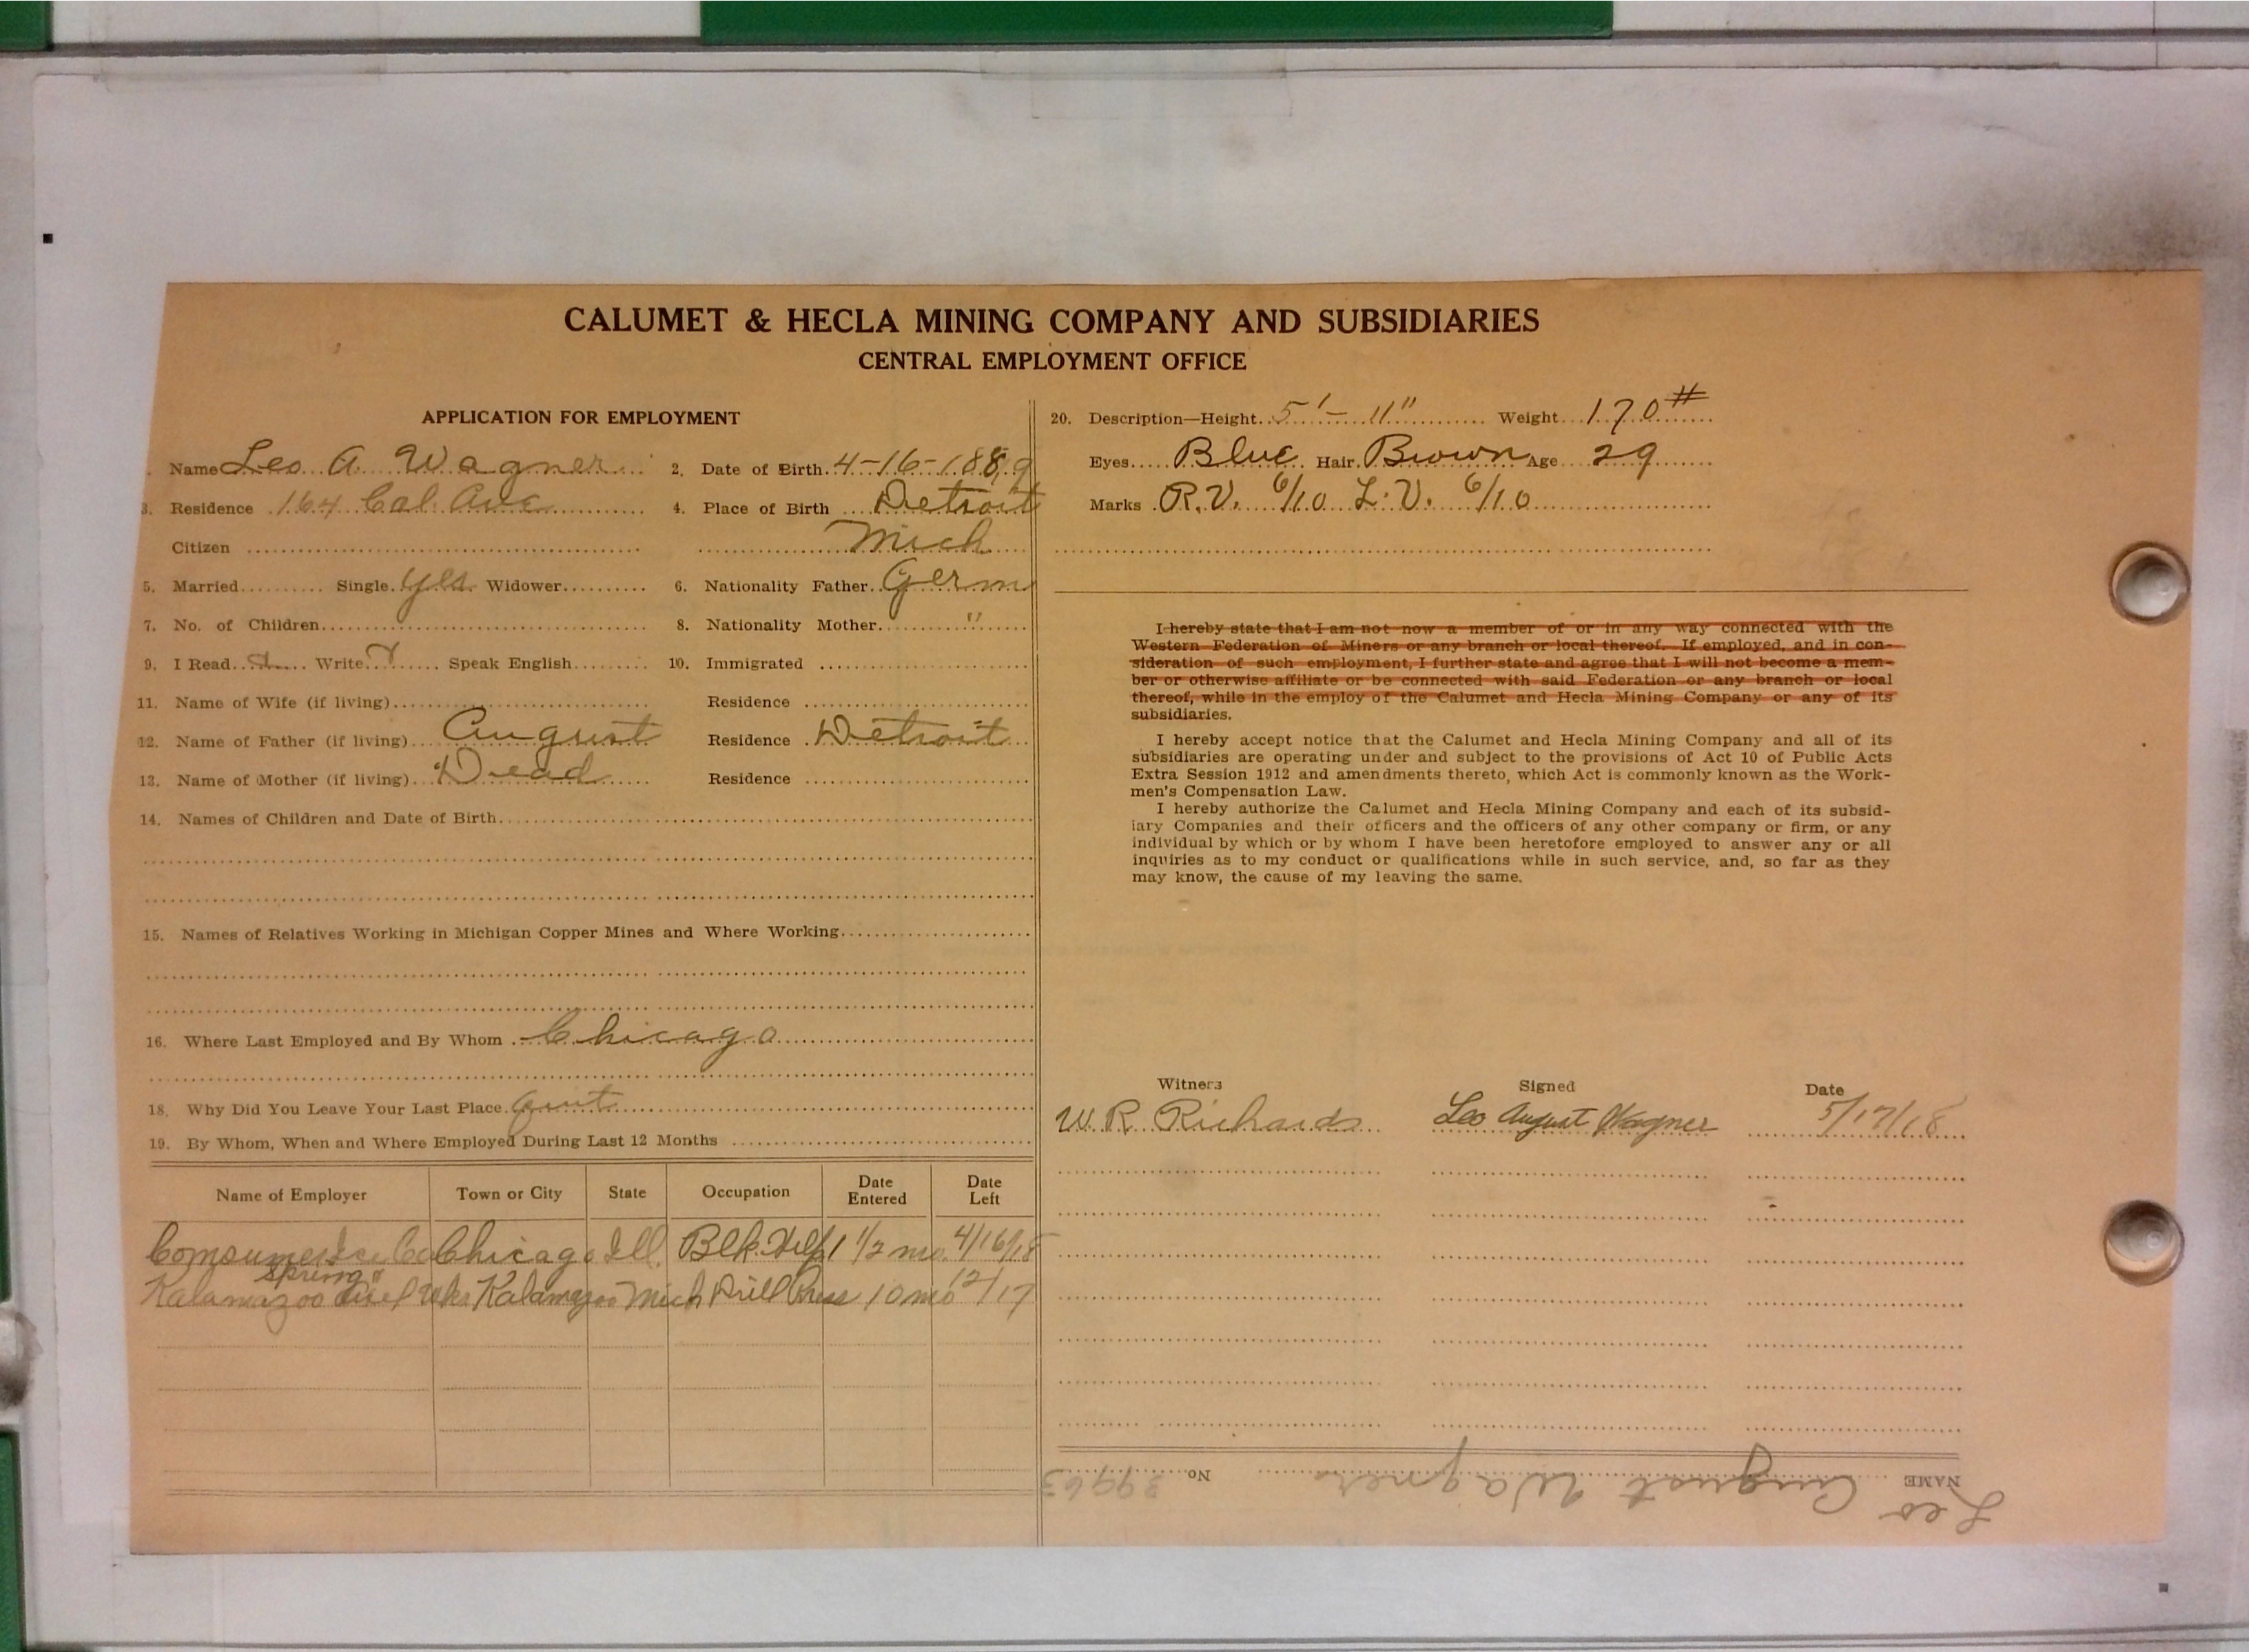 CALUMET & HECLA MINING COMPANY AND SUBSIDIARIES
CENTRAL EMPLOYMENT OFFICE
APPLICATION FOR EMPLOYMENT
Name Leo A Wagner 2. Date of Birth 4-16-1889
3. Residence 164 Cal. Ave 4. Place of Birth Detroit
Citizen Mich
5. Married Single yes Widower 6. Nationality Father Germ
7. No. of Children 8. Nationality Mother "
9. I Read Write Speak English 10. Immigrated
11. Name of Wife (if living) Residence
12. Name of Father (if living) August Residence Detroit
13. Name of Mother (if living) Dead Residence
14. Names of Children and Date of Birth
15. Names of Relatives Working in Michigan Copper Mines and Where Working
16. Where Last Employed and By Whom Chicago
18. Why Did You Leave Your Last Place
19. By Whom, When and Where Employed During Last 12 Months
Name of Employer Town or City State Occupation Date Entered Date Left
Chicago Ill. Blk. Help 1 1/2 mo. 4/16/18
Spring
Kalamazoo Wks Kalamazoo Mich Drill Press 10 mo 12/17
20. Description—Height 5'-11" Weight 170#
Eyes Blue Hair Brown Age 29
Marks R.V. 6/10 L.V. 6/10
I hereby state that I am not now a member of or in any way connected with the
Western Federation of Miners or any branch or local thereof. If employed, and in con-
sideration of such employment, I further state and agree that I will not become a mem-
ber or otherwise affiliate or be connected with said Federation or any branch or local
thereof, while in the employ of the Calumet and Hecla Mining Company or any of its
subsidiaries.
I hereby accept notice that the Calumet and Hecla Mining Company and all of its
subsidiaries are operating under and subject to the provisions of Act 10 of Public Acts
Extra Session 1912 and amendments thereto, which Act is commonly known as the Work-
men's Compensation Law.
I hereby authorize the Calumet and Hecla Mining Company and each of its subsid-
iary Companies and their officers and the officers of any other company or firm, or any
individual by which or by whom I have been heretofore employed to answer any or all
inquiries as to my conduct or qualifications while in such service, and, so far as they
may know, the cause of my leaving the same.
Witness Signed Date
W. R. Richards Leo August Wagner 5/17/18
NAME Leo August Wagner No. 39963